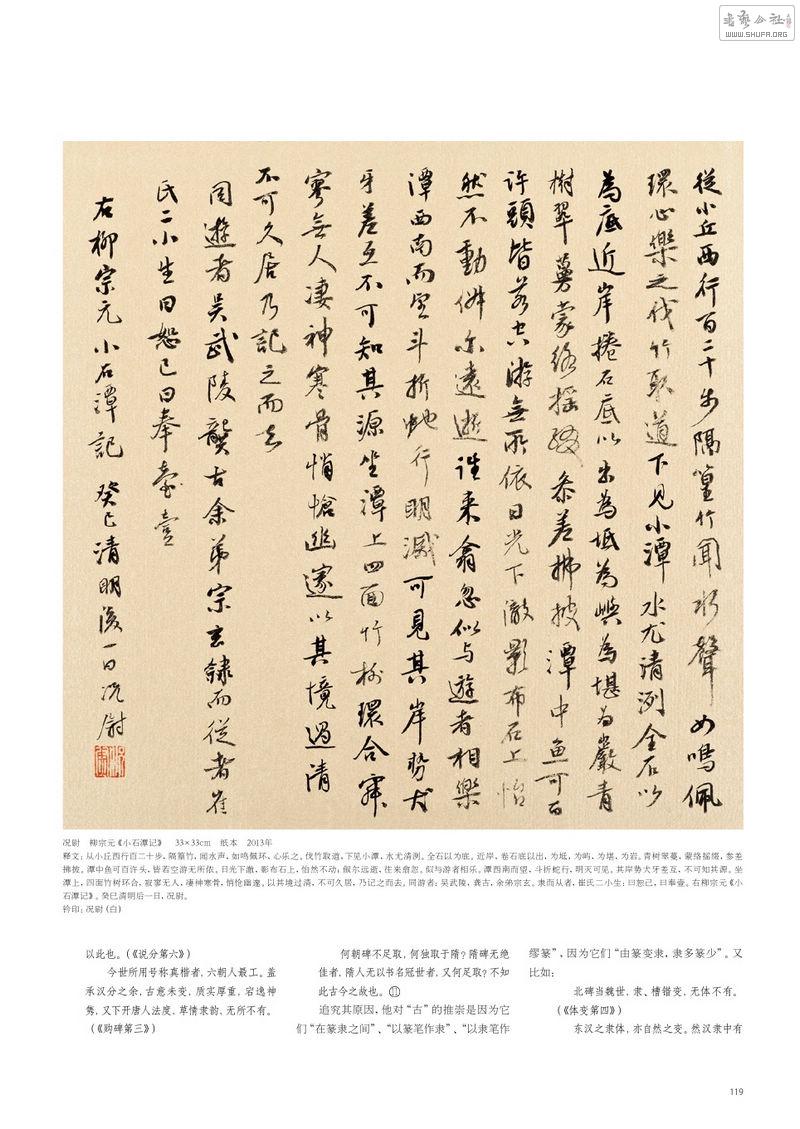 书艺公社
WWW.SHUFA.ORG
從小丘西行百二十步隔篁竹聞水聲如鳴佩
環心樂之伐竹取道下見小潭水尤清洌全石以
為底近岸捲石底以出為坻為嶼為堪為巖青
樹翠蔓蒙絡摇綴参差拂披潭中鱼可百
许頭皆若空游無所依日光下澈影布石上怡
然不動俶尔遠逝往来翕忽似与遊者相樂
潭西南而望斗折蛇行明滅可見其岸勢犬
牙差互不可知其源坐潭上四面竹树環合寂
寥無人凄神寒骨悄愴幽邃以其境過清
不可久居乃記之而去
同遊者吴武陵龔古余弟宗玄隸而従者崔
氏二小生曰恕己曰奉壹
右柳宗元小石潭記 癸巳清明後一日况尉
况尉 柳宗元《小石潭记》 33×33cm 纸本 2013年
释文：从小丘西行百二十步，隔篁竹，闻水声，如鸣佩环，心乐之。伐竹取道，下见小潭，水尤清洌。全石以为底。近岸，卷石底以出，为坻，为屿，为堪，为岩。青树翠蔓，蒙络摇缀，参差
拂披。潭中鱼可百许头，皆若空游无所依。日光下澈，影布石上，怡然不动；俶尔远逝，往来翕忽。似与游者相乐。潭西南而望，斗折蛇行，明灭可见。其岸势犬牙差互，不可知其源。坐
潭上，四面竹树环合，寂寥无人，凄神寒骨，悄怆幽邃。以其境过清，不可久居，乃记之而去。同游者：吴武陵，龚古，余弟宗玄。隶而从者，崔氏二小生：曰恕己，曰奉壹。右柳宗元《小
石潭记》。癸巳清明后一日，况尉。
钤印：况尉（白）
以此也。（《说分第六》）
今世所用号称真楷者，六朝人最工。盖
承汉分之余，古意未变，质实厚重，宕逸神
隽，又下开唐人法度，草情隶韵，无所不有。
（《购碑第三》）
何朝碑不足取，何独取于隋？隋碑无绝
佳者，隋人无以书名冠世者，又何足取？不知
此古今之故也。⑪
追究其原因，他对“古”的推崇是因为它
们“在篆隶之间”、“以篆笔作隶”、“以隶笔作
缪篆”，因为它们“由篆变隶，隶多篆少”。又
比如：
北碑当魏世，隶、楷错变，无体不有。
（《体变第四》）
东汉之隶体，亦自然之变。然汉隶中有
119